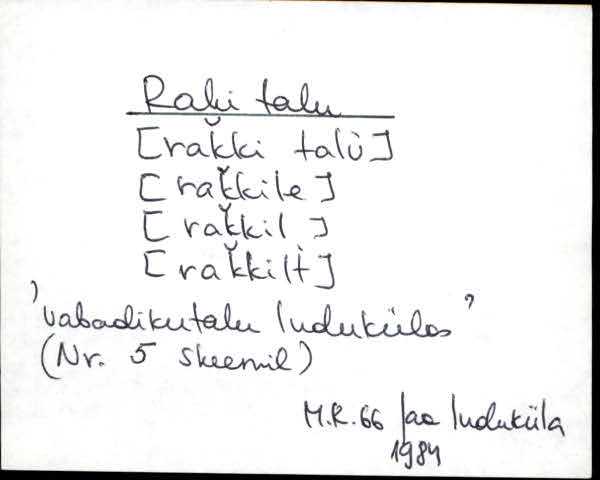 Raki talu
[rak̆ki talù]
[rak̆kile]
[rak̆kil]
[rak̆kilt̀]
'vabadikutalu Indukülas'
(Nr. 5 skeemil)
M.R. 66 Jaa Induküla
1984